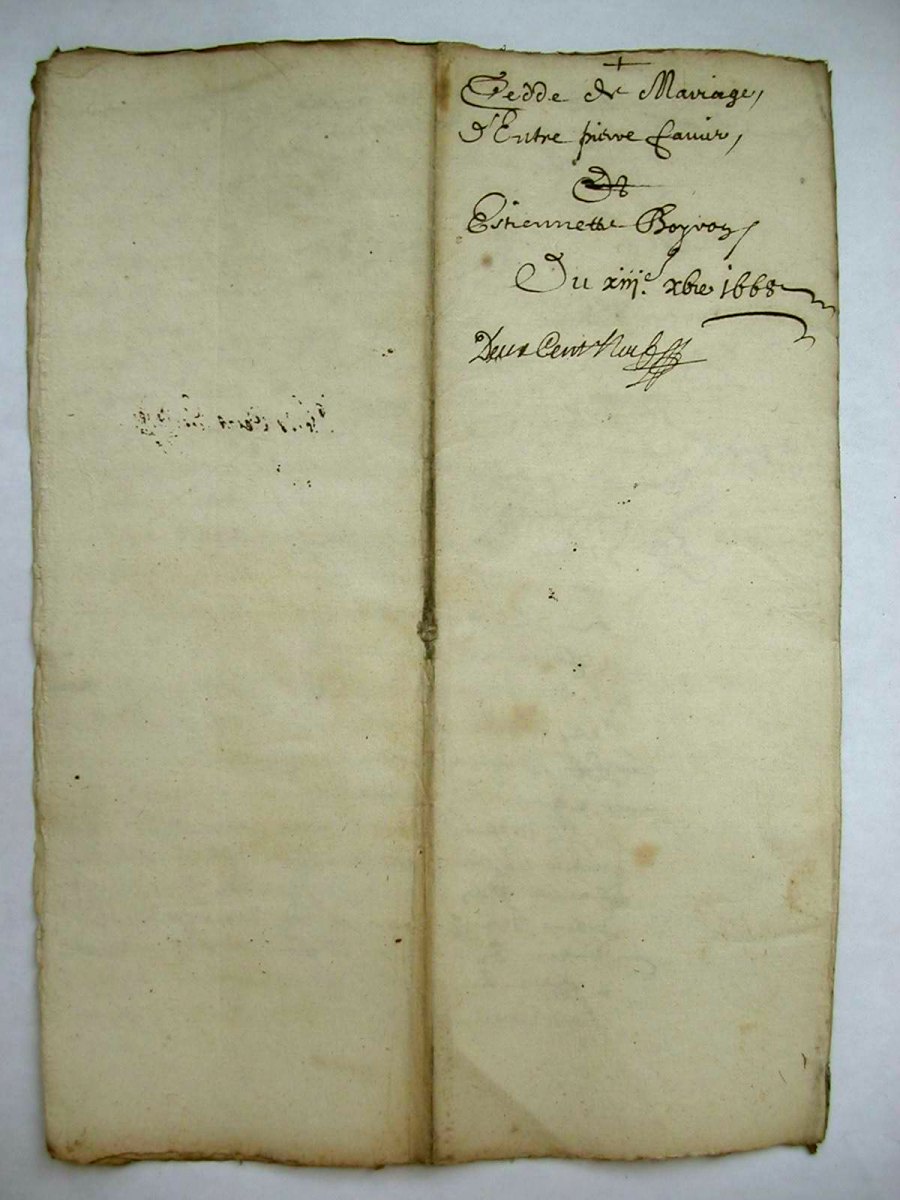 Cedde de Mariage,
d'Entre pierre favier,
Et
Estiennette Boyron,
Du xiiij.e xbre 1668
Deux Cent Neuf